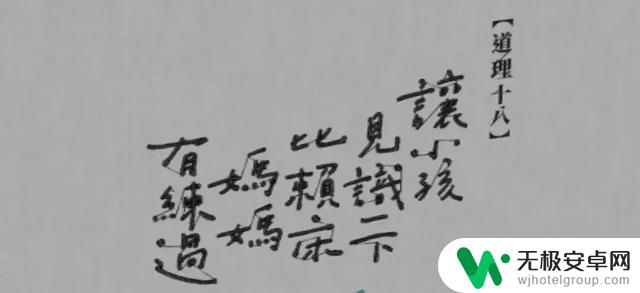 【道理十八】
讓小孩
見識一下
比賴床
媽媽
有練過
无极安卓网
wjhotelgroup.com